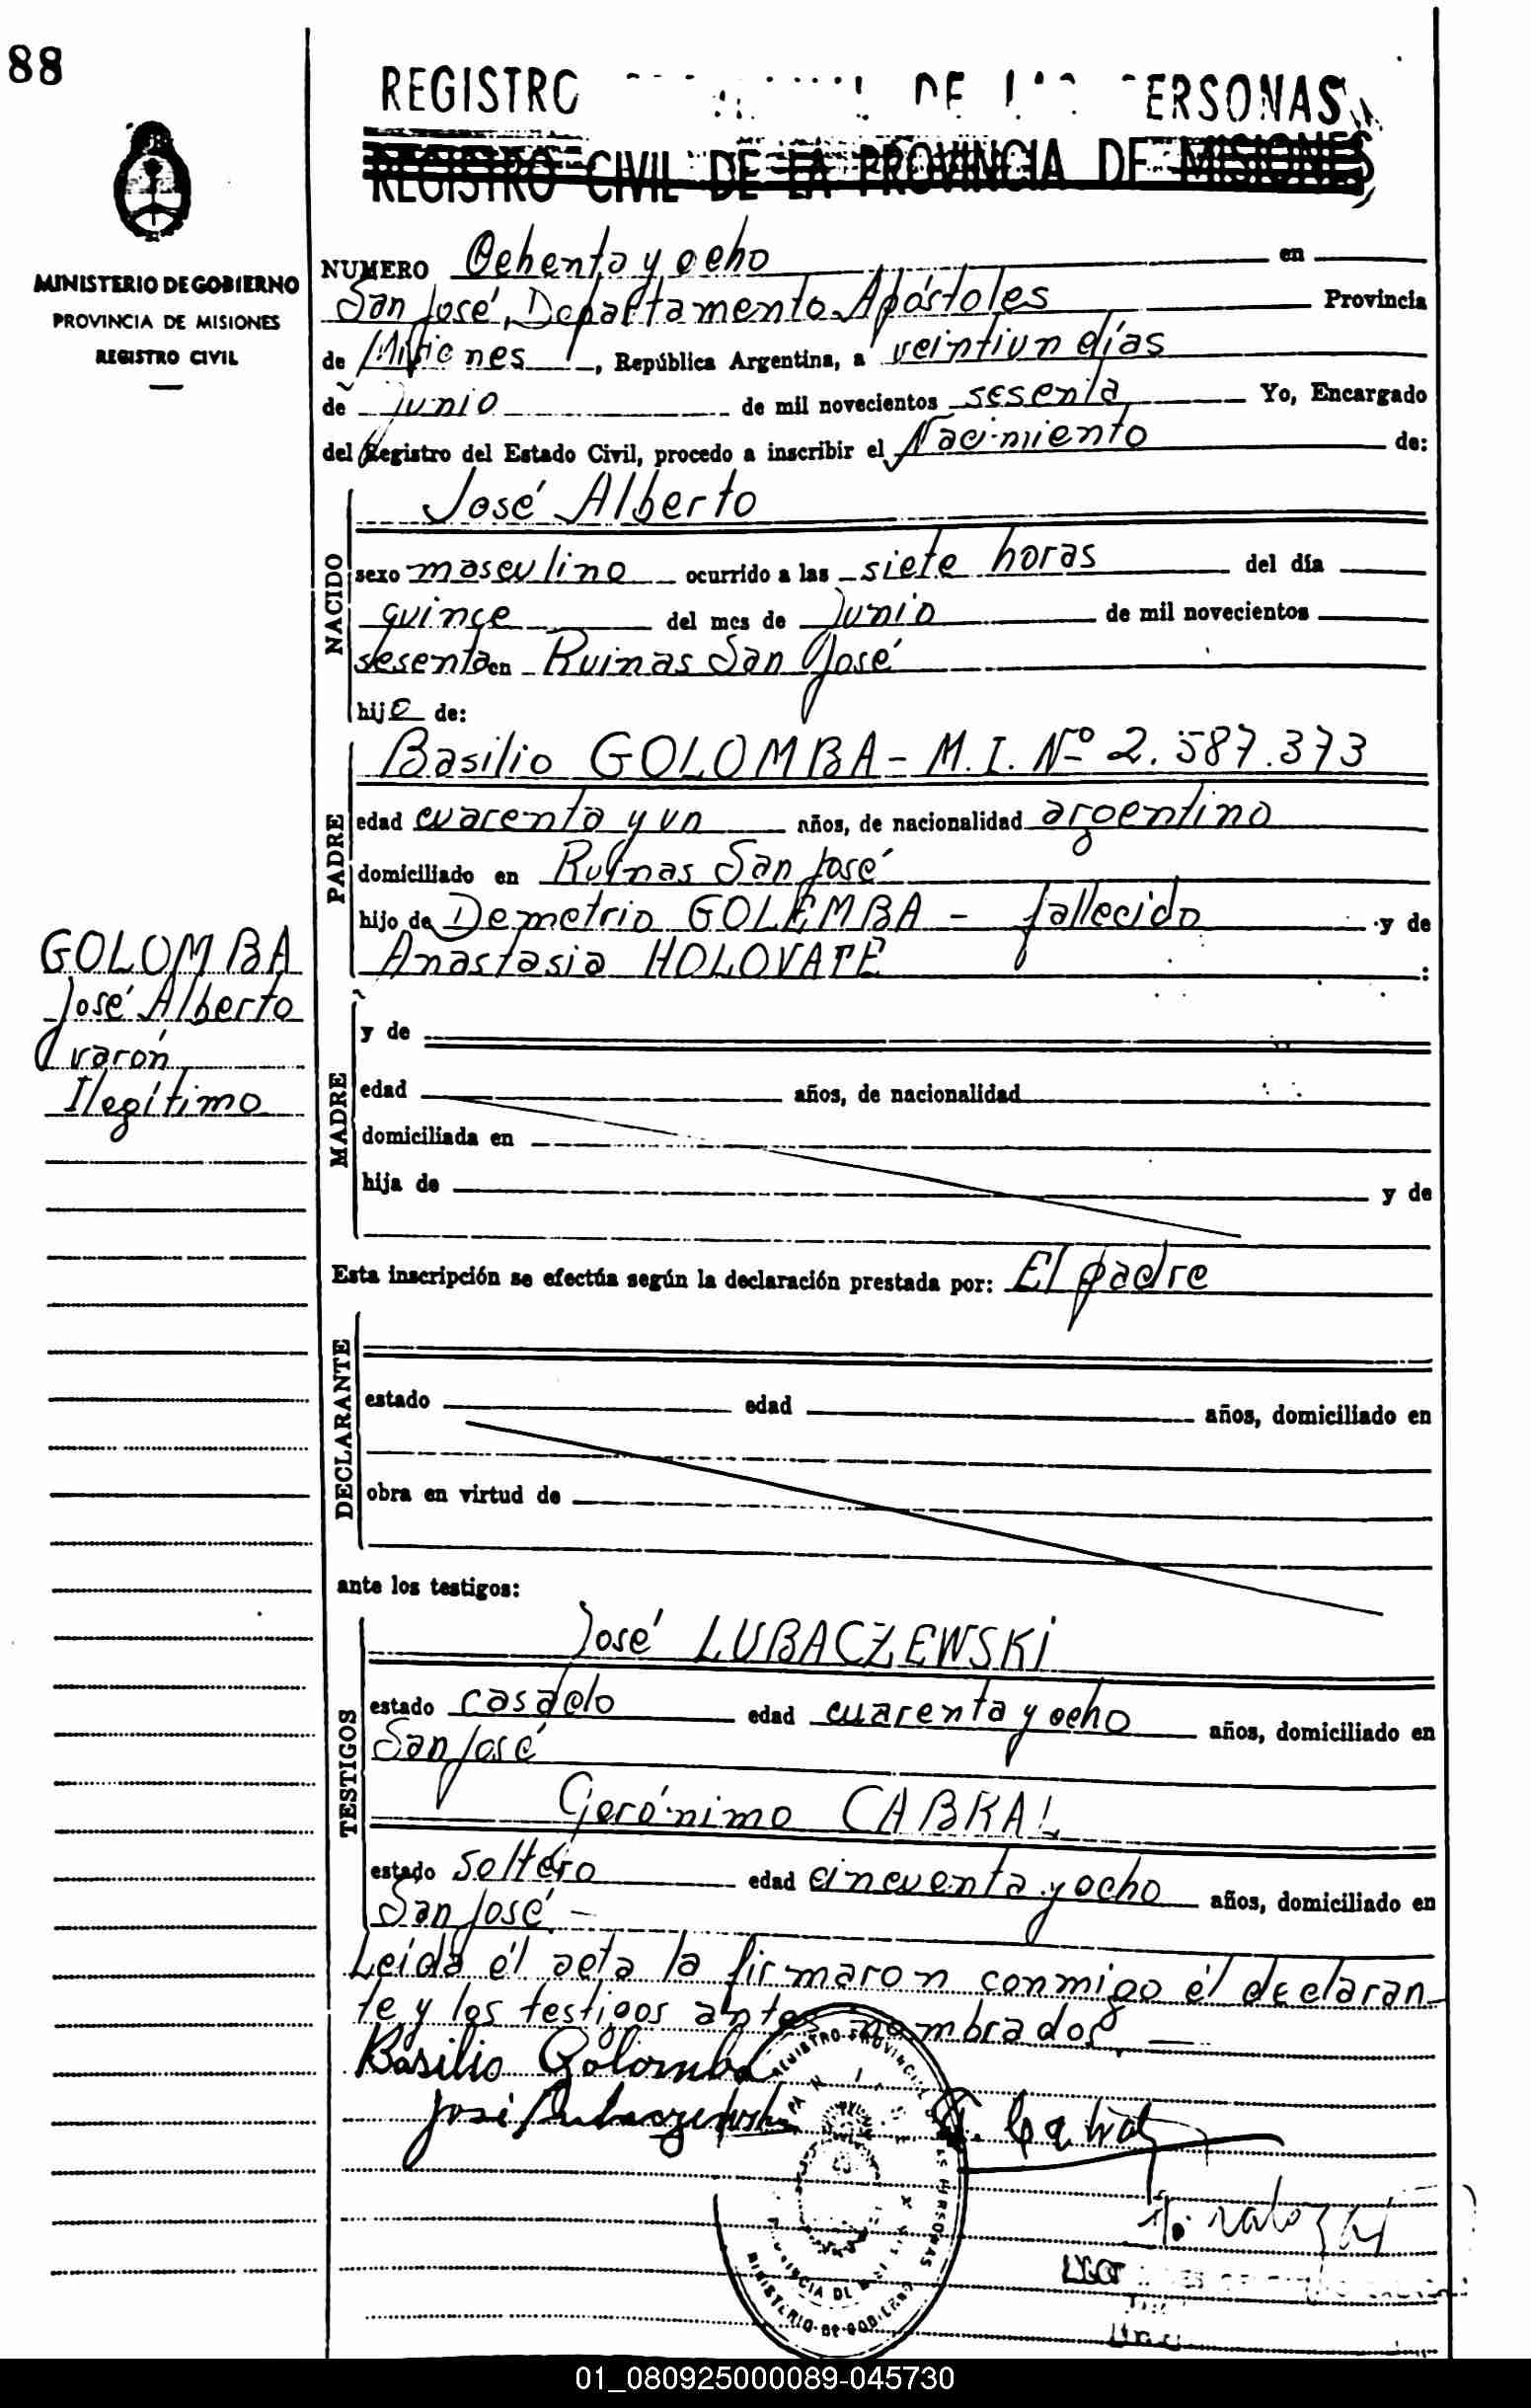 88
REGISTRO DE PERSONAS
REGISTRO CIVIL DE LA PROVINCIA DE MISIONES
MINISTERIO DE GOBIERNO
PROVINCIA DE MISIONES
REGISTRO CIVIL
NUMERO Ochenta y ocho en
San José, Departamento Apóstoles Provincia
de Misiones, República Argentina, a veintiun días
de junio de mil novecientos sesenta Yo, Encargado
del Registro del Estado Civil, procedo a inscribir el Nacimiento de:
NACIDO
José Alberto
sexo masculino ocurrido a las siete horas del día
quince del mes de Junio de mil novecientos
sesenta en Ruinas San José
hijo de:
PADRE
Basilio GOLOMBA - M.I. Nº 2.587.373
edad cuarenta y un años, de nacionalidad argentino
domiciliado en Ruinas San José
hijo de Demetrio GOLEMBA - fallecido y de
Anastasia HOLOVATE :
GOLOMBA
José Alberto
varón
Ilegítimo
MADRE
y de
edad años, de nacionalidad
domiciliada en
hija de y de
Esta inscripción se efectúa según la declaración prestada por: El padre
DECLARANTE
estado edad años, domiciliado en
obra en virtud de
ante los testigos:
TESTIGOS
José LUBACZEWSKI
estado casado edad cuarenta y ocho años, domiciliado en
San José
Gerónimo CABRAL
estado soltero edad cincuenta y ocho años, domiciliado en
San José -
Leída él acta la firmaron conmigo él declaran
te y los testigos antes nombrados
Basilio Golomba
José Lubaczewski
G. Cabral
MINISTERIO DE GOBIERNO
01_080925000089-045730